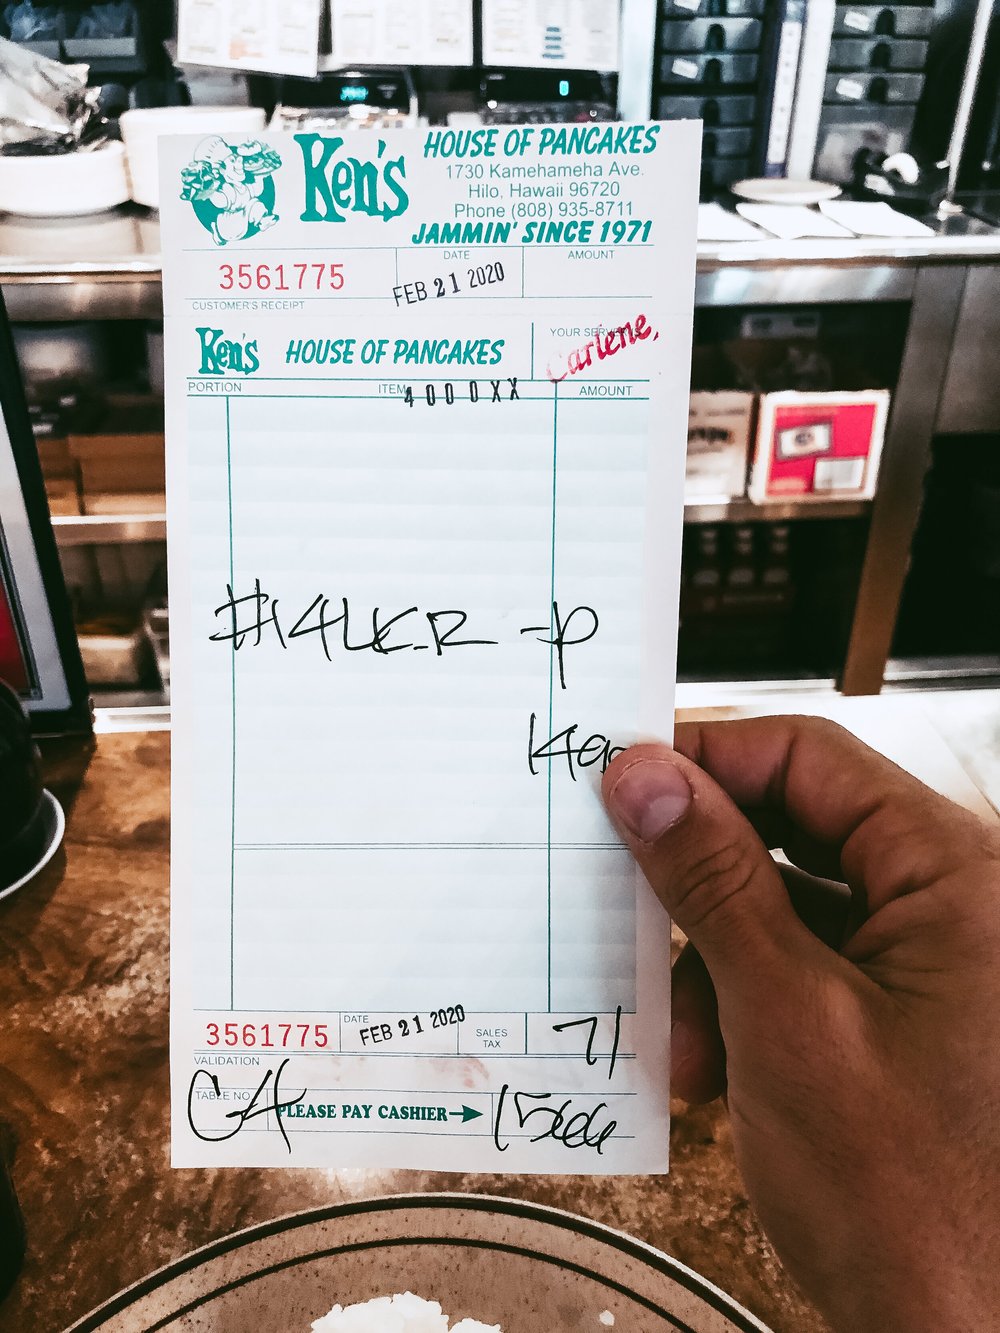 Ken's
HOUSE OF PANCAKES
1730 Kamehameha Ave.
Hilo, Hawaii 96720
Phone (808) 935-8711
JAMMIN' SINCE 1971
3561775
DATE
FEB 21 2020
AMOUNT
CUSTOMER'S RECEIPT
Ken's HOUSE OF PANCAKES
YOUR SERVER IS
Carlene,
PORTION
ITEM
AMOUNT
4000XX
3561775
DATE
FEB 21 2020
SALES
TAX
71
VALIDATION
TABLE NO.
G4
PLEASE PAY CASHIER
1566